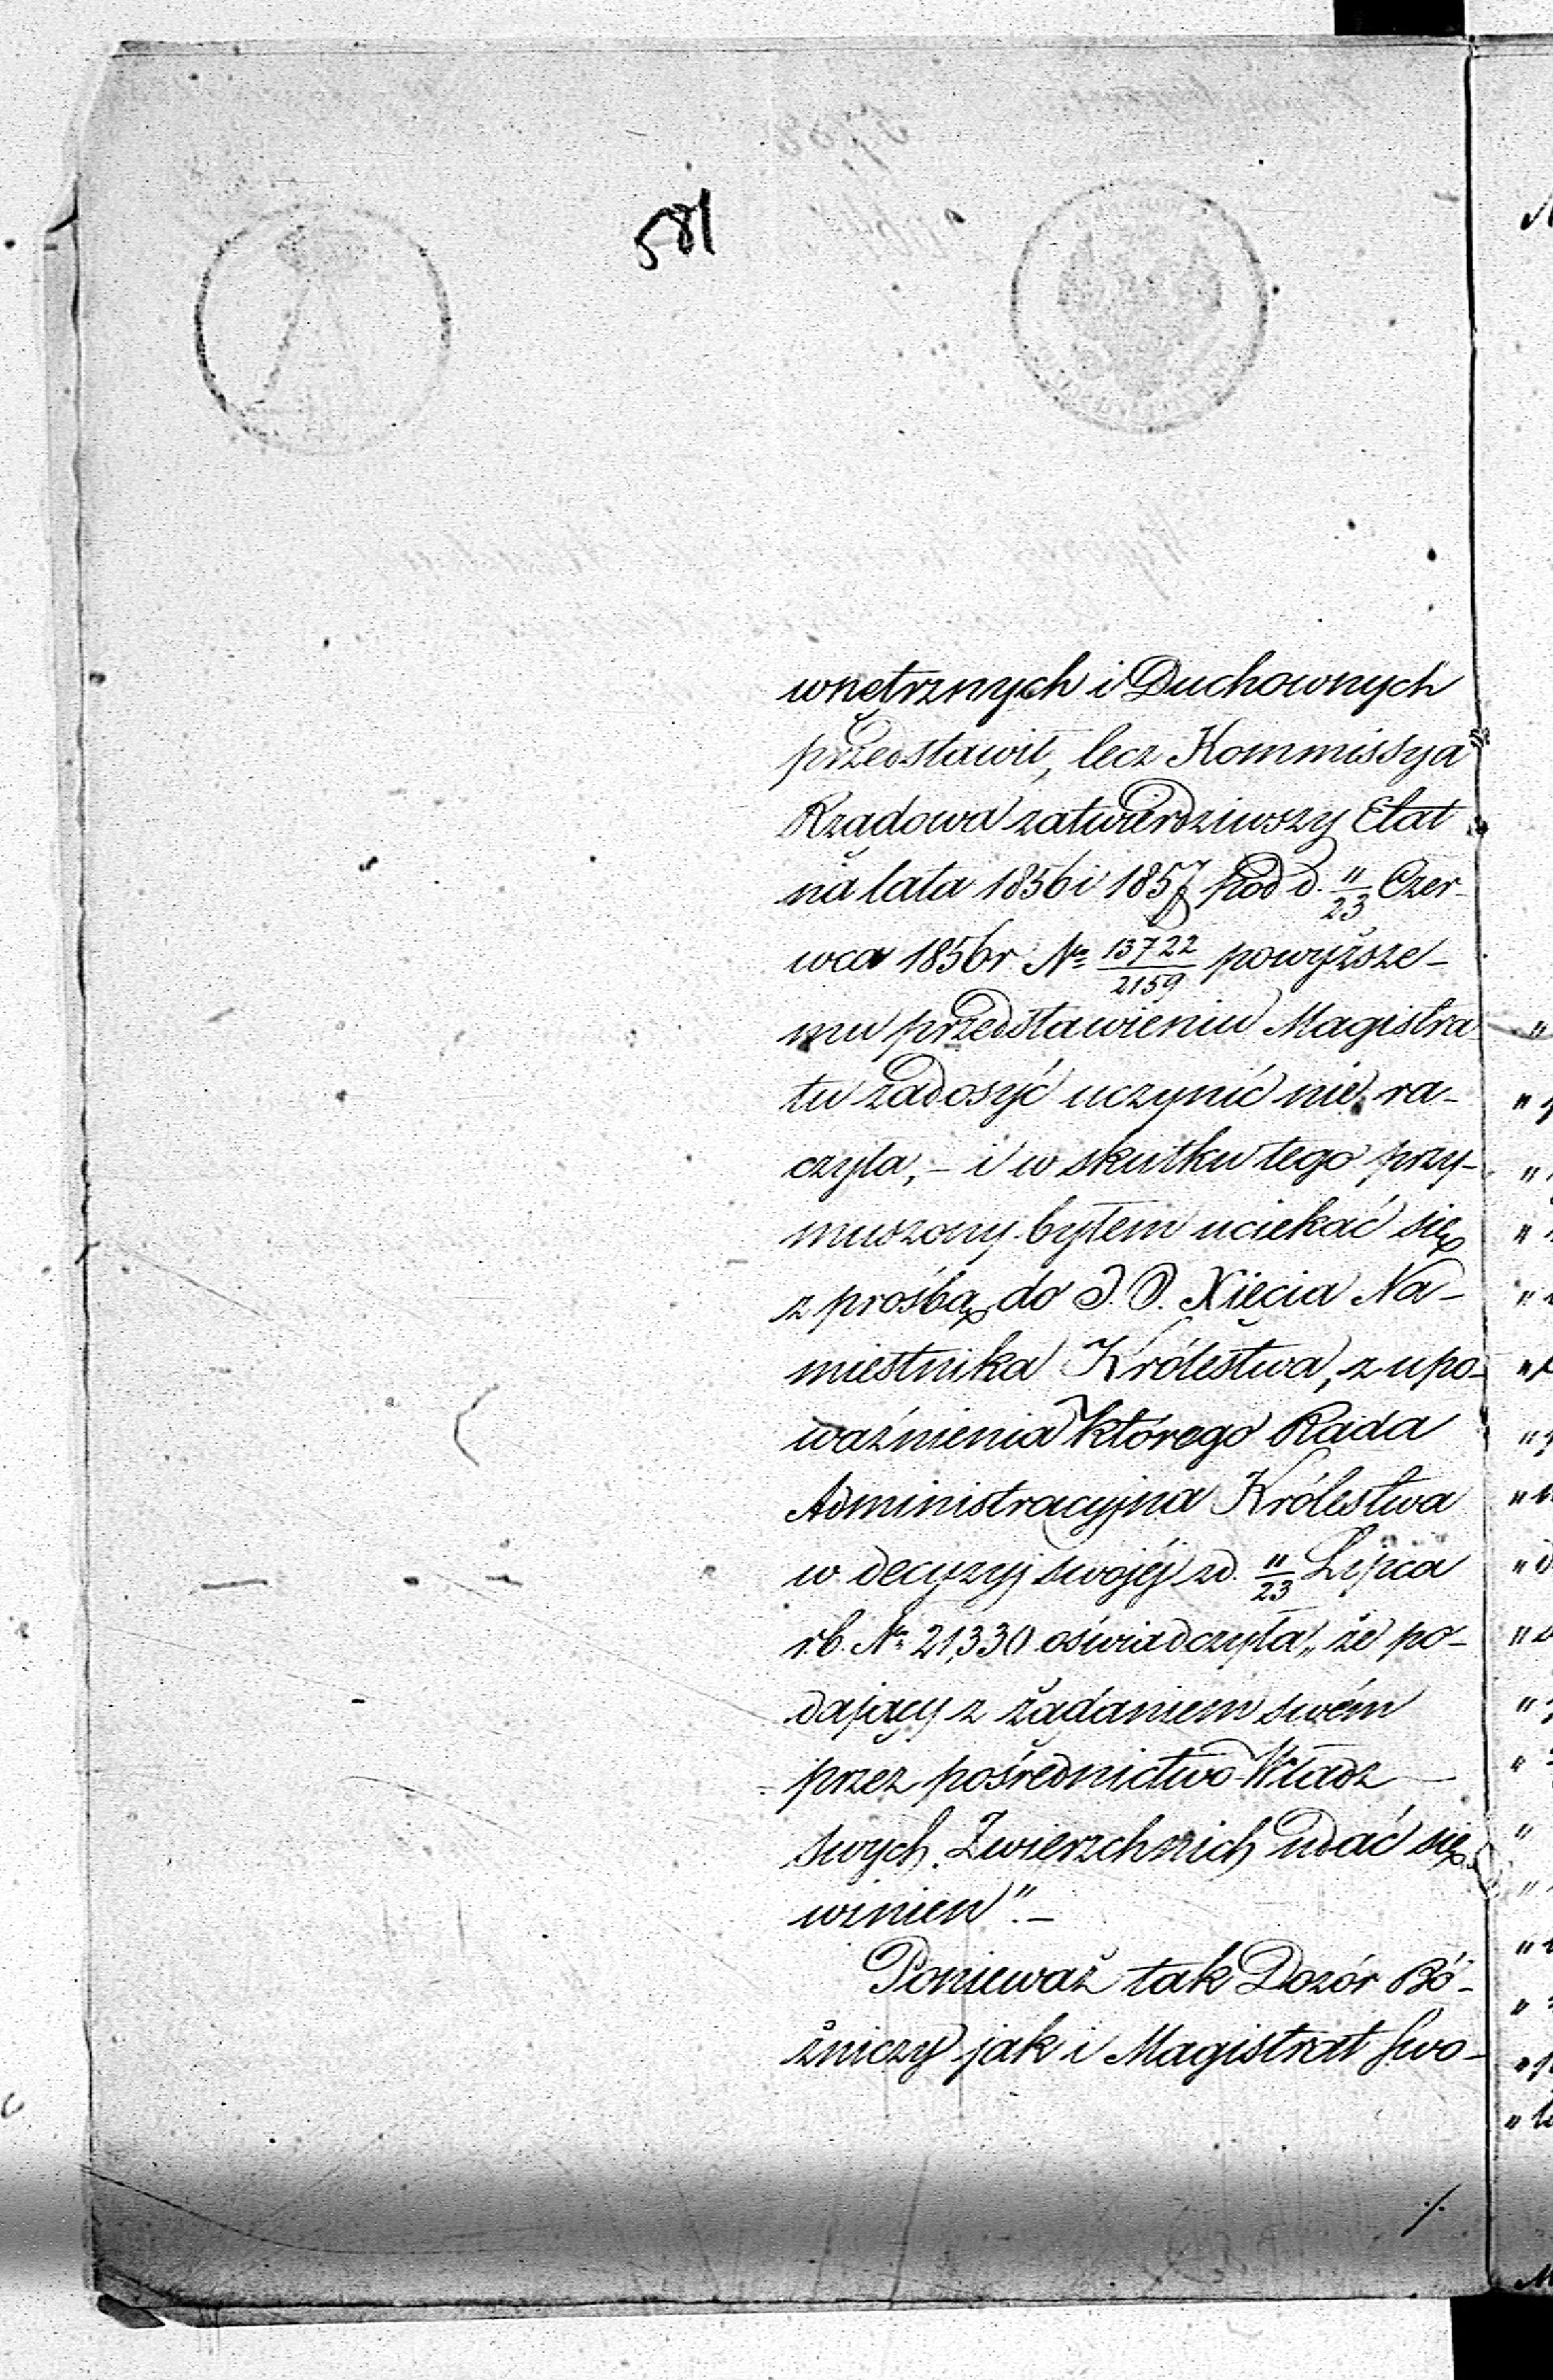 581
wnętrznych i Duchownych
przedstawił, lecz Kommissya
Rządowa zatwierdziwszy Etat
na lata 1856 i 1857 pod d. 11/23 Czer-
wca 1856 r. No 13722/2159 powyższe-
mu przedstawieniu Magistra-
tu zadosyć uczynić nie ra-
czyła, - i w skutku tego przy-
muszony byłem uciekać się
z prośbą do J. O. Xięcia Na-
miestnika Królestwa, z upo-
ważnienia którego Rada
Administracyjna Królestwa
w decyzyj swojéj z d. 11/23 Lipca
r.b. No 21,330 oświadczyła „że po-
dający z żądaniem swém
przez pośrednictwo Władz
swych Zwierzchnich udać się
winien”. -
Ponieważ tak Dozór Bó-
żniczy jak i Magistrat swo-
./.